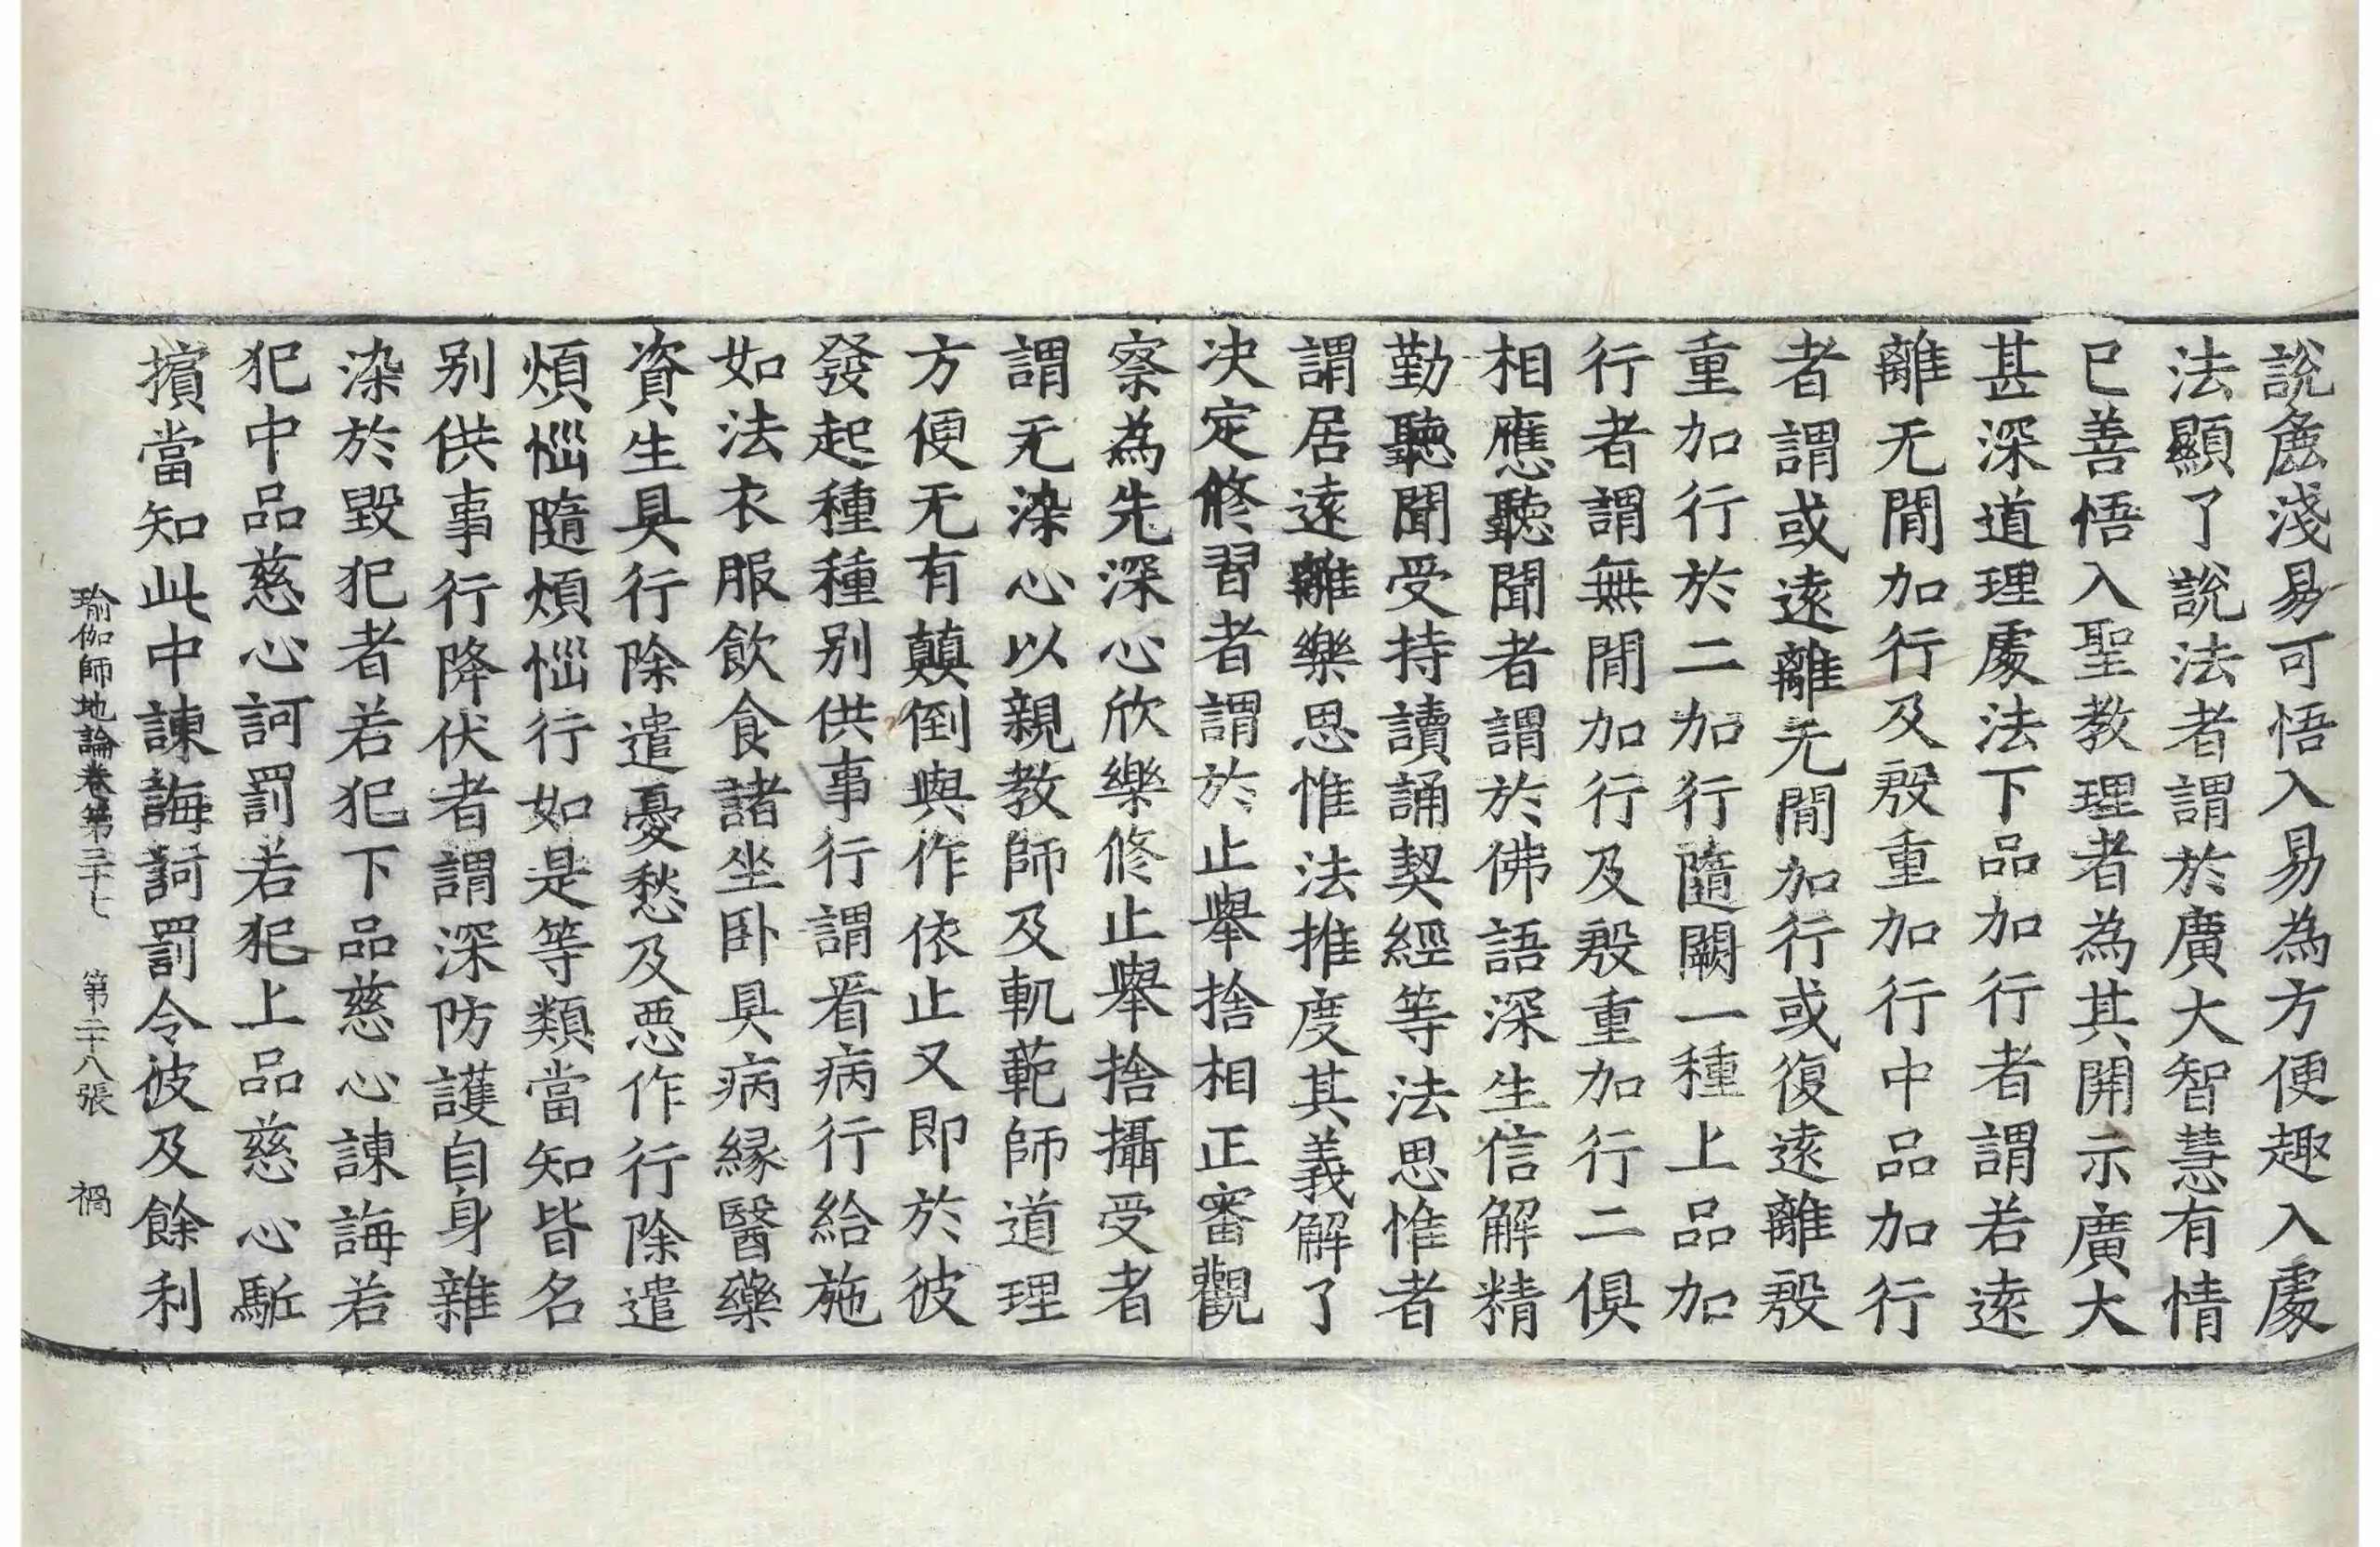 說麁淺易可悟入易為方便趣入處
法顯了說法者謂於廣大智慧有情
已善悟入聖教理者為其開示廣大
甚深道理處法下品加行者謂若遠
離无閒加行及殷重加行中品加行
者謂或遠離无閒加行或復遠離殷
重加行於二加行隨闕一種上品加
行者謂無閒加行及殷重加行二俱
相應聽聞者謂於佛語深生信解精
勤聽聞受持讀誦契經等法思惟者
謂居遠離樂思惟法推度其義解了
决定修習者謂於止舉捨相正審觀
察為先深心欣樂修止舉捨攝受者
謂无染心以親教師及軌範師道理
方便无有顛倒與作依止又即於彼
發起種種别供事行謂看病行給施
如法衣服飲食諸坐卧具病緣醫藥
資生具行除遣憂愁及惡作行除遣
煩惱隨煩惱行如是等類當知皆名
别供事行降伏者謂深防護自身雜
染於毀犯者若犯下品慈心諫誨若
犯中品慈心訶罰若犯上品慈心駈
擯當知此中諫誨訶罰令彼及餘利
瑜伽師地論卷第三十七 第二十八張 禍